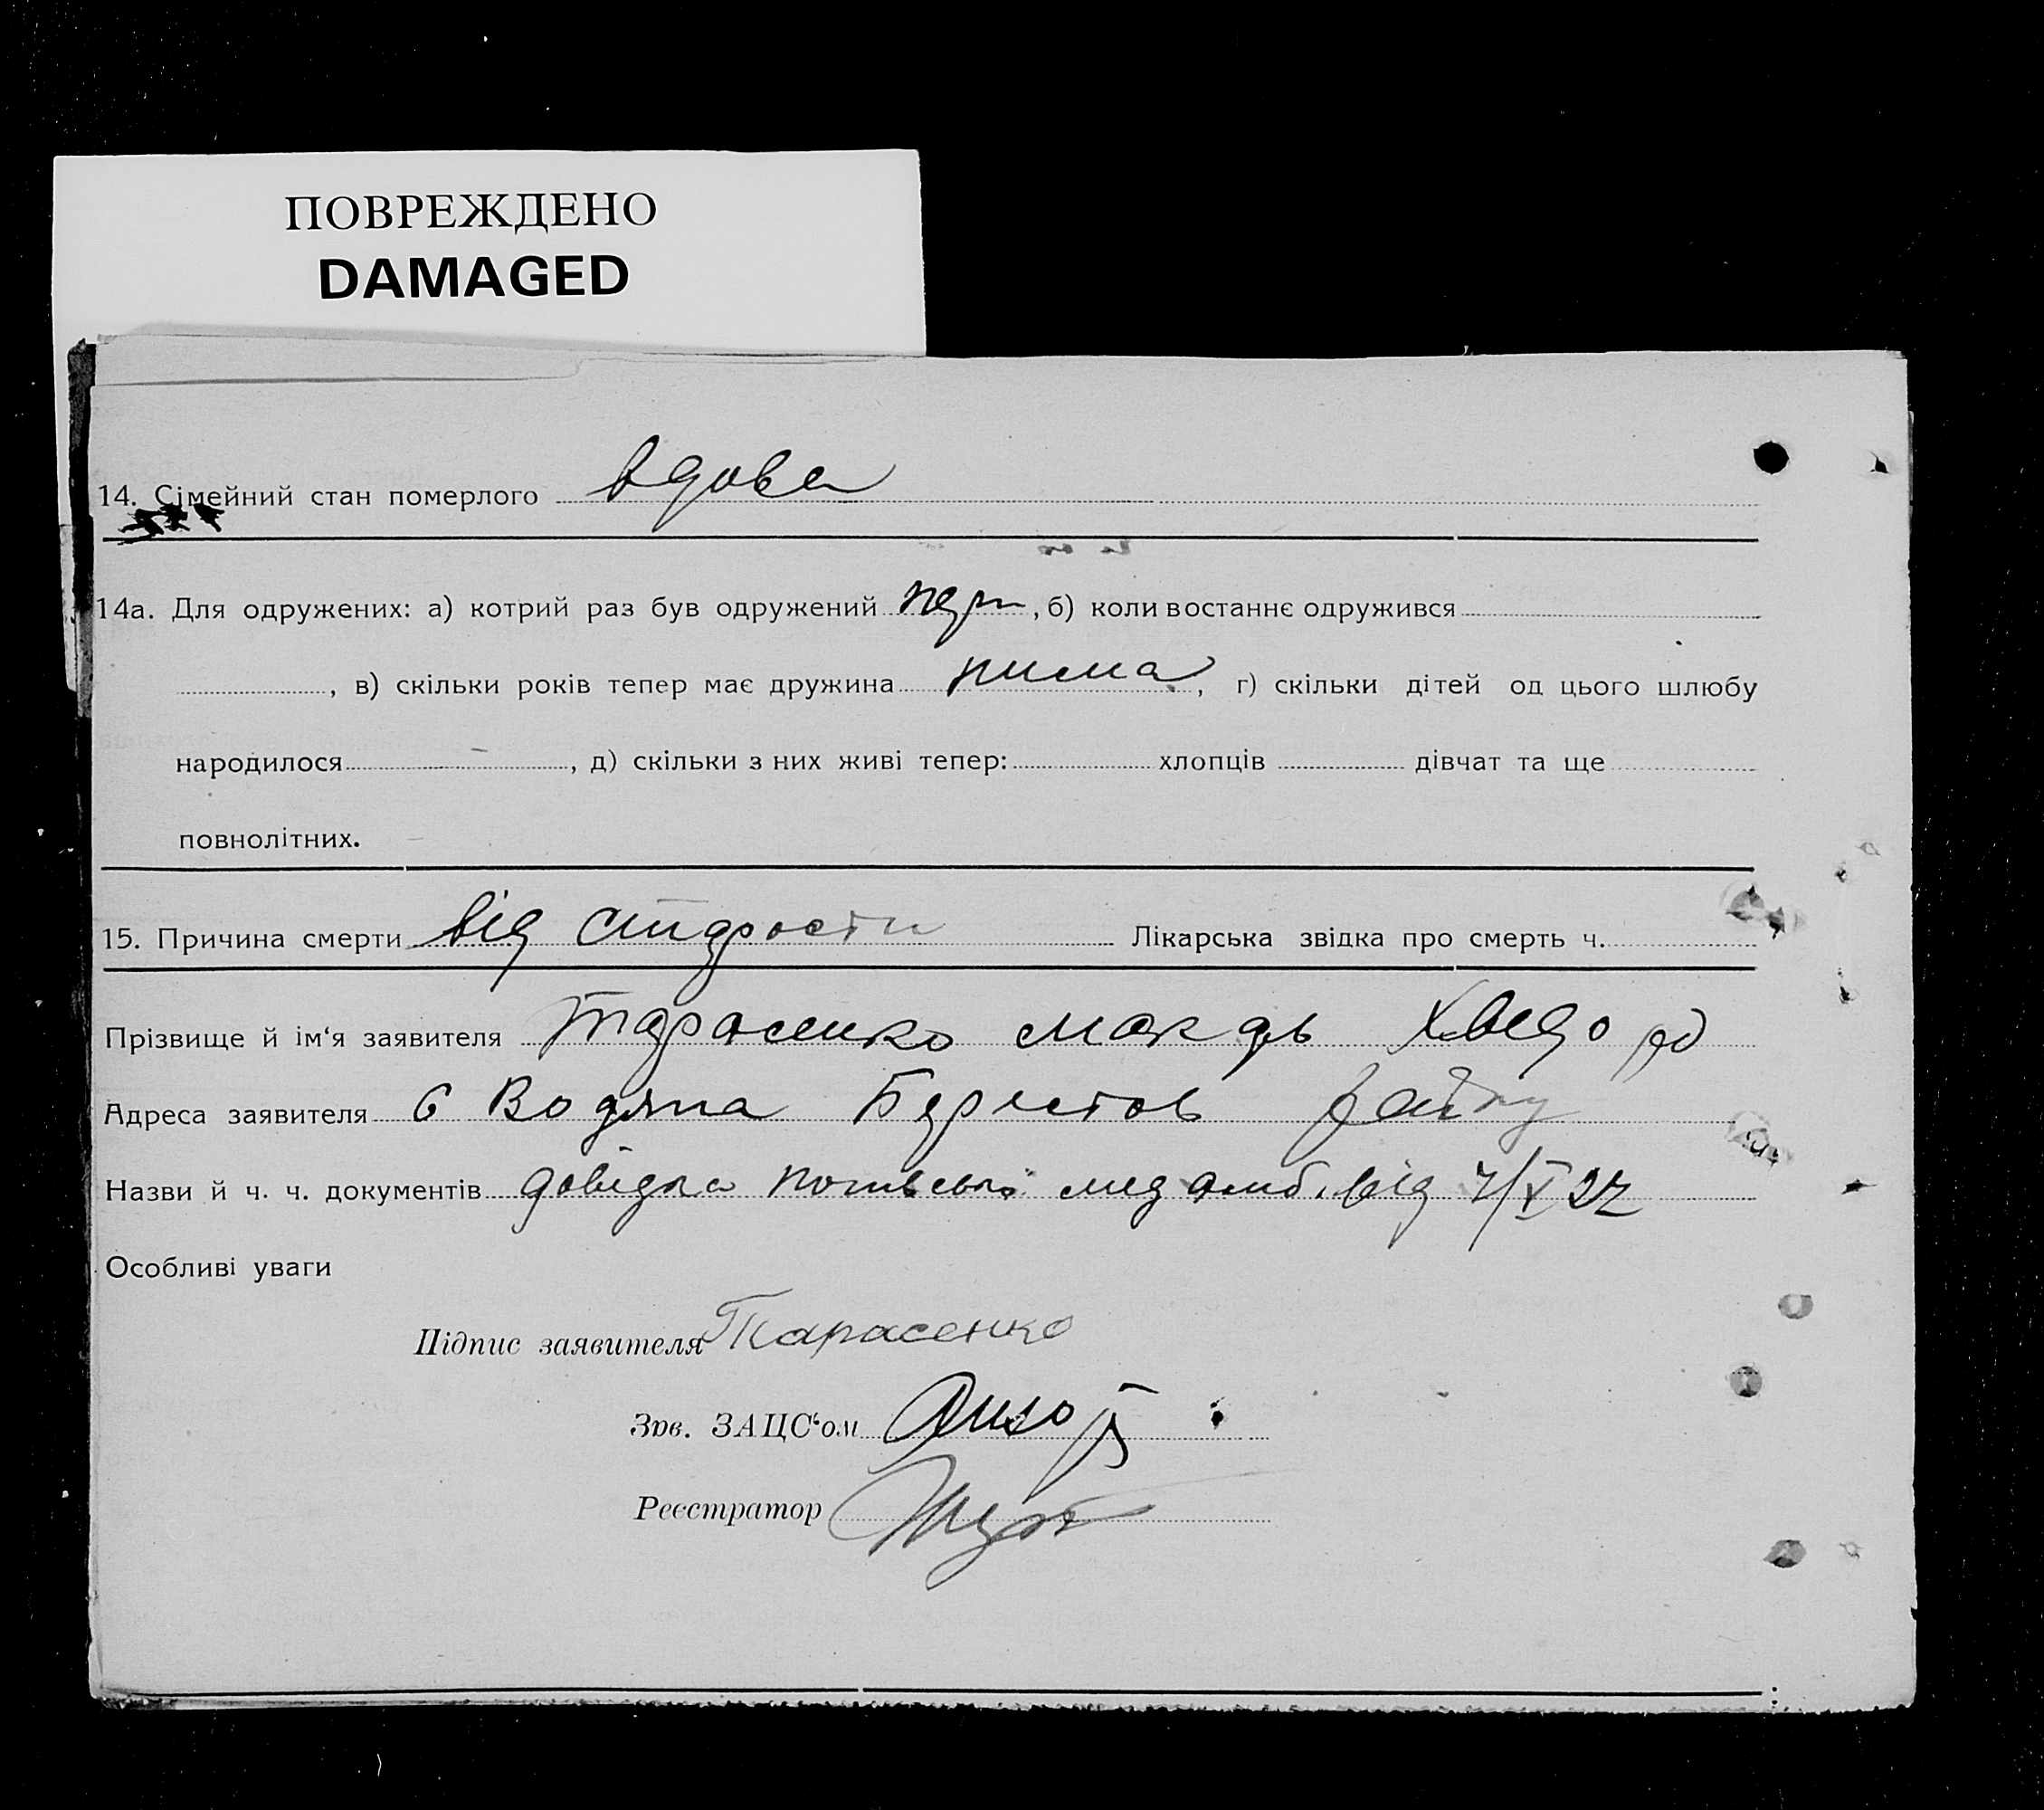 ПОВРЕЖДЕНО
DAMAGED
14. Сімейний стан померлого вдова
14а. Для одружених: а) котрий раз був одружений перш, б) коли востаннє одружився
, в) скільки років тепер має дружина нима, г) скільки дітей од цього шлюбу
народилося -, д) скільки з них живі тепер: хлопців дівчат та ще
повнолітних.
15. Причина смерти від старости Лікарська звідка про смерть ч.
Прізвище й ім‘я заявителя Тарасенко Хведор
Адреса заявителя с Водяна Берестов району
Назви й ч. ч. документів довідка мед амб. від 7/V 27
Особливі уваги
Підпис заявителя Тарасенко
Зав. ЗАЦС‘ом
Реєстратор